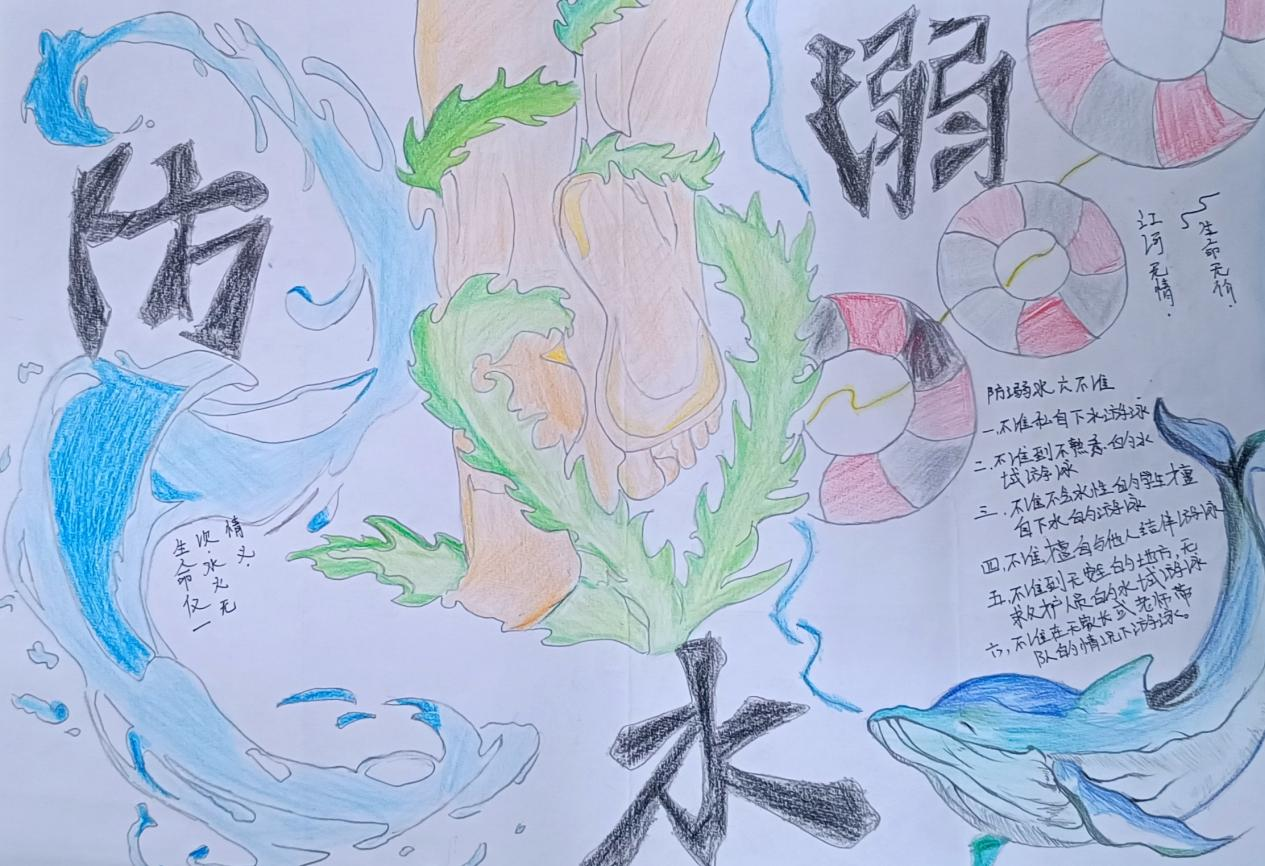 防
溺
水
江河无情.
生命无价.
生命仅一
次.水火无
情义.
防溺水六不准
一.不准私自下水游泳
二.不准到不熟悉的水
域游泳
三.不准不会水性的学生擅
自下水的游泳
四,不准擅自与他人结伴游泳
五.不准到无安全的地方,无
救护人员的水域游泳
六,不准在无家长或老师带
队的情况下游泳。